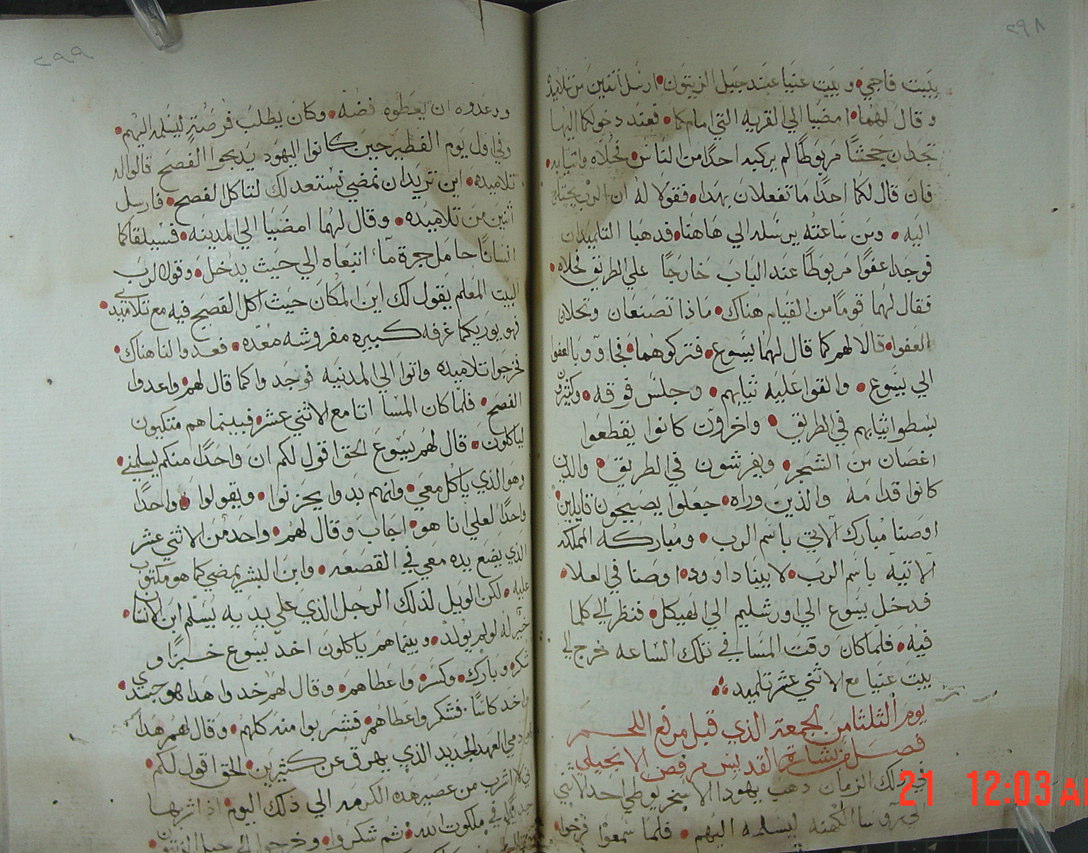 ٢٩٨
ببيت فاجي وبيت عنيا عند جبل الزيتون ارسل اثنين من تلاميذه
وقال لهما امضيا الي القريه التي امامكما فعند دخولكما اليها
تجدان جحشًا مربوطًا لم يركبه احدًا من الناس فحلاه واتيا به
فان قال لكما احدًا ما تفعلان بهدا فقولا له ان الرب يحتاج
اليه ومن ساعته يرسله الي هاهنا فدهبا التلميدان
فوجدا عفوًا مربوطًا عند الباب خارجًا علي الطريق فحلاه
فقال لهما قومًا من القيام هناك مادا تصنعان وتحلان
العفوا قالا لهم كما قال لهما يسوع فتركوهما فجاووا بالعفوا
الي يسوع والقوا عليه ثيابهم وجلس فوقه وكثيرون
بسطوا ثيابهم في الطريق واخرون كانوا يقطعوا
اغصان من الشجر ويفرشون في الطريق والدين
كانوا قدامه والذين وراه جعلوا يصيحون قايلين
اوصنا مبارك الاتي باسم الرب ومباركه المملكه
الاتيه باسم الرب لابينا داوود اوصنا في العلا
فدخل يسوع الي اورشليم الي الهيكل فنظر الي كلما
فيه فلما كان وقت المسا في تلك الساعه خرج الي
بيت عنيا مع الاثني عشر تلميد
يوم الثلثا من الجمعة الذي قبل مرفع اللحم
فصل من بشارة القديس مرقص الانجيلي
في دلك الزمان دهب يهودا الاسخريوطي احد الاثني
الي روسا الكهنه ليسلمه اليهم فلما سمعوا فرحوا
٢٩٩
ووعدوه ان يعطوه فضه وكان يطلب فرصةٍ ليسلمه اليهم
وفي اول يوم الفطير حين كانوا اليهود يدبحوا الفصح قالوا له
تلاميده اين تريد ان نمضي نستعد لك لتاكل الفصح فارسل
اثنين من تلاميده وقال لهما امضيا الي المدينه فسيلقاكما
انسانًا حامل جرة ماء اتبعاه الي حيث يدخل وقولا لرب
البيت المعلم يقول لك اين المكان حيث اكل الفصح فيه مع تلاميدي
فهو يوريكما غرفه كبيره مفروشه معده فعدوا لنا هناك
فخرجوا تلاميده واتوا الي المدنيه فوجدوا كما قال لهم واعدوا
الفصح فلما كان المسا اتا مع الاثني عشر فبينما هم متكيون
لياكلون قال لهم يسوع الحق اقول لكم ان واحدًا منكم يسلمني
وهو الذي ياكل معي وانهم بدوا يحزنوا ويقولوا واحدًا
واحدًا لعلي انا هو اجاب وقال لهم واحد من الاثني عشر
الذي يضع يده معي في القصعه وابن البشر يمضي كما هو مكتوب
عليه لكن الويل لدلك الرجل الذي علي يديه يسلم ابن الانسان
خير له لو لم يولد وبينما هم ياكلون اخد يسوع خبزًا و
شكر وبارك وكسر واعطاهم وقال لهم خدوا هدا هو جسدي
واخد كاسًا فشكر واعطاهم فشربوا منه كلهم وقال لهم هدا
دمي العهد الجديد الذي يهرق عن كثيرين الحق اقول لكم
اني لا اشرب من عصير هده الكرمه الي ذلك اليوم اذ اشربها
في ملكوت الله ثم شكروا وخرجوا الي جبل الزيتون